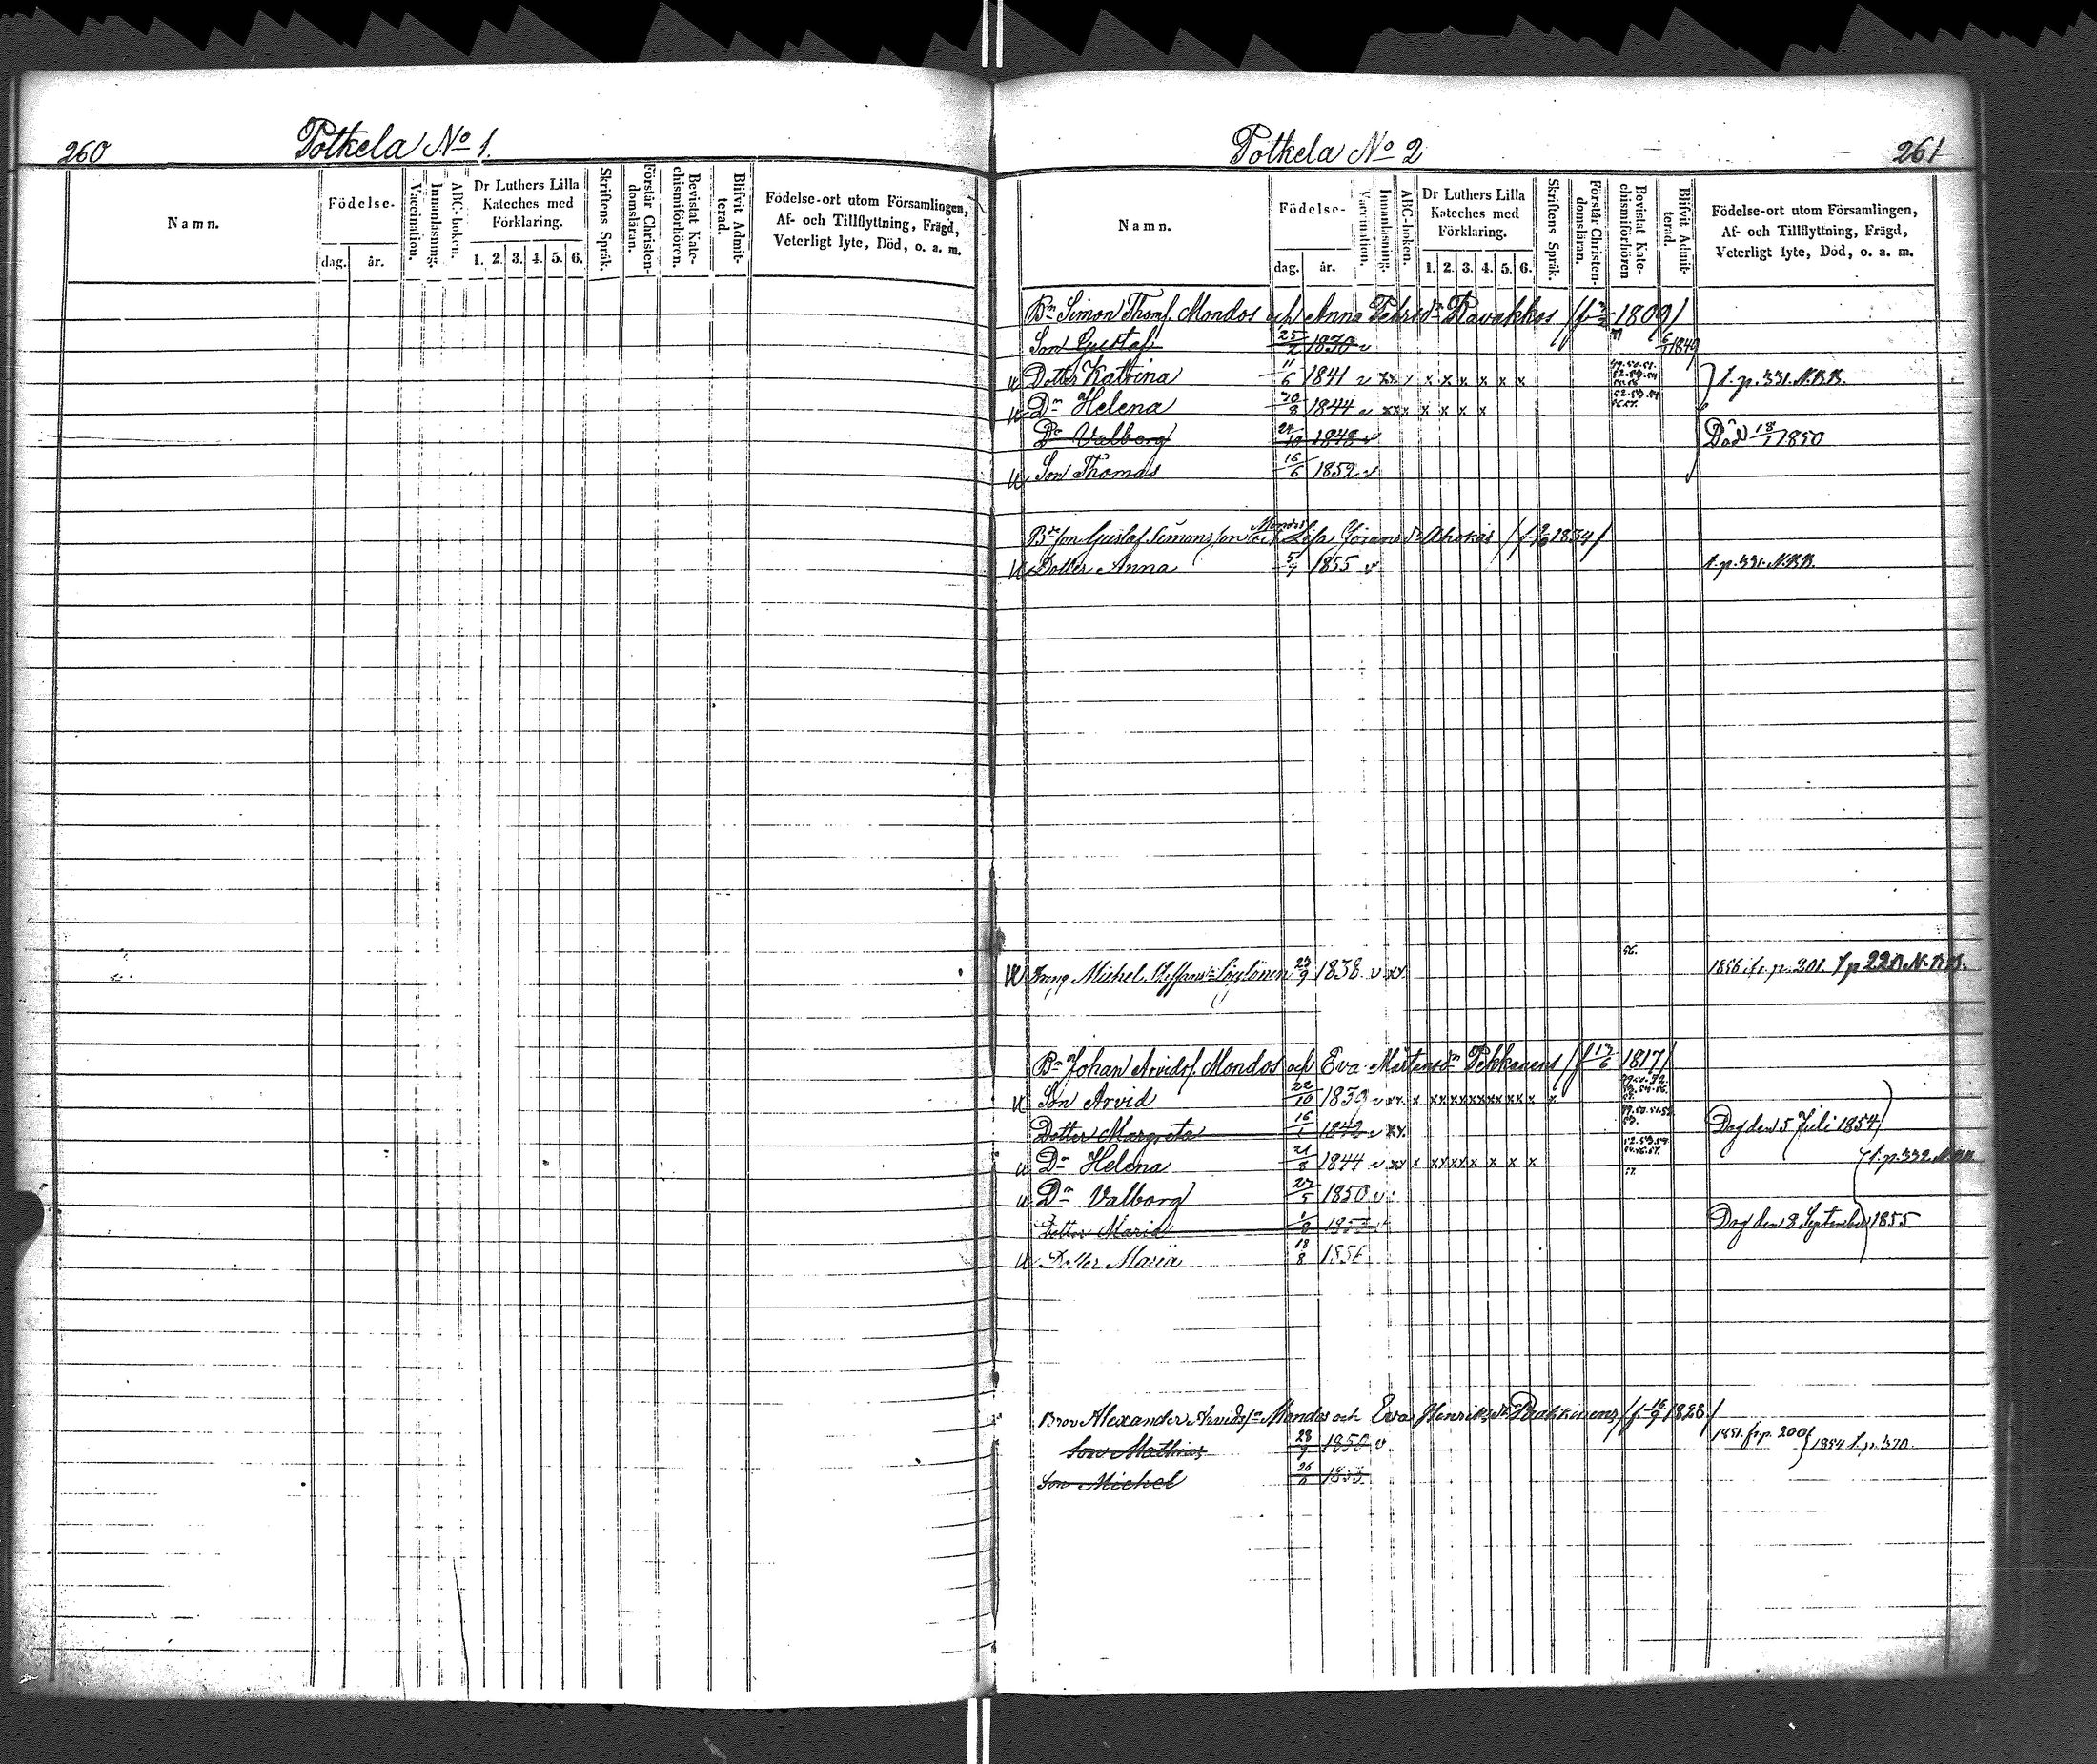 260
Potkela No 1.
Namn.
Födelse-
dag. år.
Vaccination.
Innanläsning.
ABC-boken.
Dr Luthers Lilla
Kateches med
Förklaring.
1. 2. 3. 4. 5. 6.
Skriftens Språk.
Förstår Christen-
domsläran.
Bevistat Kate-
chismiförhören.
Blifvit Admit-
terad.
Födelse-ort utom Församlingen,
Af- och Tillflyttning, Frägd,
Veterligt lyte, Död, o. a. m.
Potkela No 2
261
Namn.
Födelse-
dag. år.
Vaccination.
Innanläsning.
ABC-boken.
Dr Luthers Lilla
Kateches med
Förklaring.
1. 2. 3. 4. 5. 6.
Skriftens Språk.
Förstår Christen-
domsläran.
Bevistat Kate-
chismiförhören
Blifvit Admit-
terad.
Födelse-ort utom Församlingen,
Af- och Tillflyttning, Frägd,
Veterligt lyte, Död, o. a. m.
Bn Simon Thoms. Mondos och Anna Pehrsdr 1809/
Son Gustaf 25/2 1830 v 1849
Dotter Katrina 11/6 1841 v xx x x x x x x t. p. 331. N.B.B.
Dn Helena 20/8 1844 v xxx x x x x
Dn Valborg 24/10 1848 v Död 18/1 1850
Son Thomas 16/6 1852 v
Bdeson Gustaf Simonsson Mondos och Lisa Göransdr Ahokas 1834/
Dotter Anna 5/7 1855 v t. p. 331. N.B.B.
Michel 23/9 1838. v xx. 56. 1856 fr. p. 201. N.B.B.
Bn Johan Arvids. Mondos och Eva Mårtensdr Pekkanens /f 17/6 1817/
Son Arvid 22/10 1839 v xx. x xxxxxxxxx x x
Dotter Margreta 1842 v xx. Dog den 5 Juli 1854
Dn Helena 21/8 1844 v xx x xxxx x x x t. p. 332. N.B.B.
Dn Valborg 27/5 1850 v.
Dotter Maria 1/8 Dog den 8 September 1855
Dotter Maria 18/8 1856
Bror Alexander Arvidsson Mondos och Eva Henriksdr 1828/
Son Mathias 28/9 1850 v. 1851. fr. p. 200 1854 t. p. 370.
Son Michel